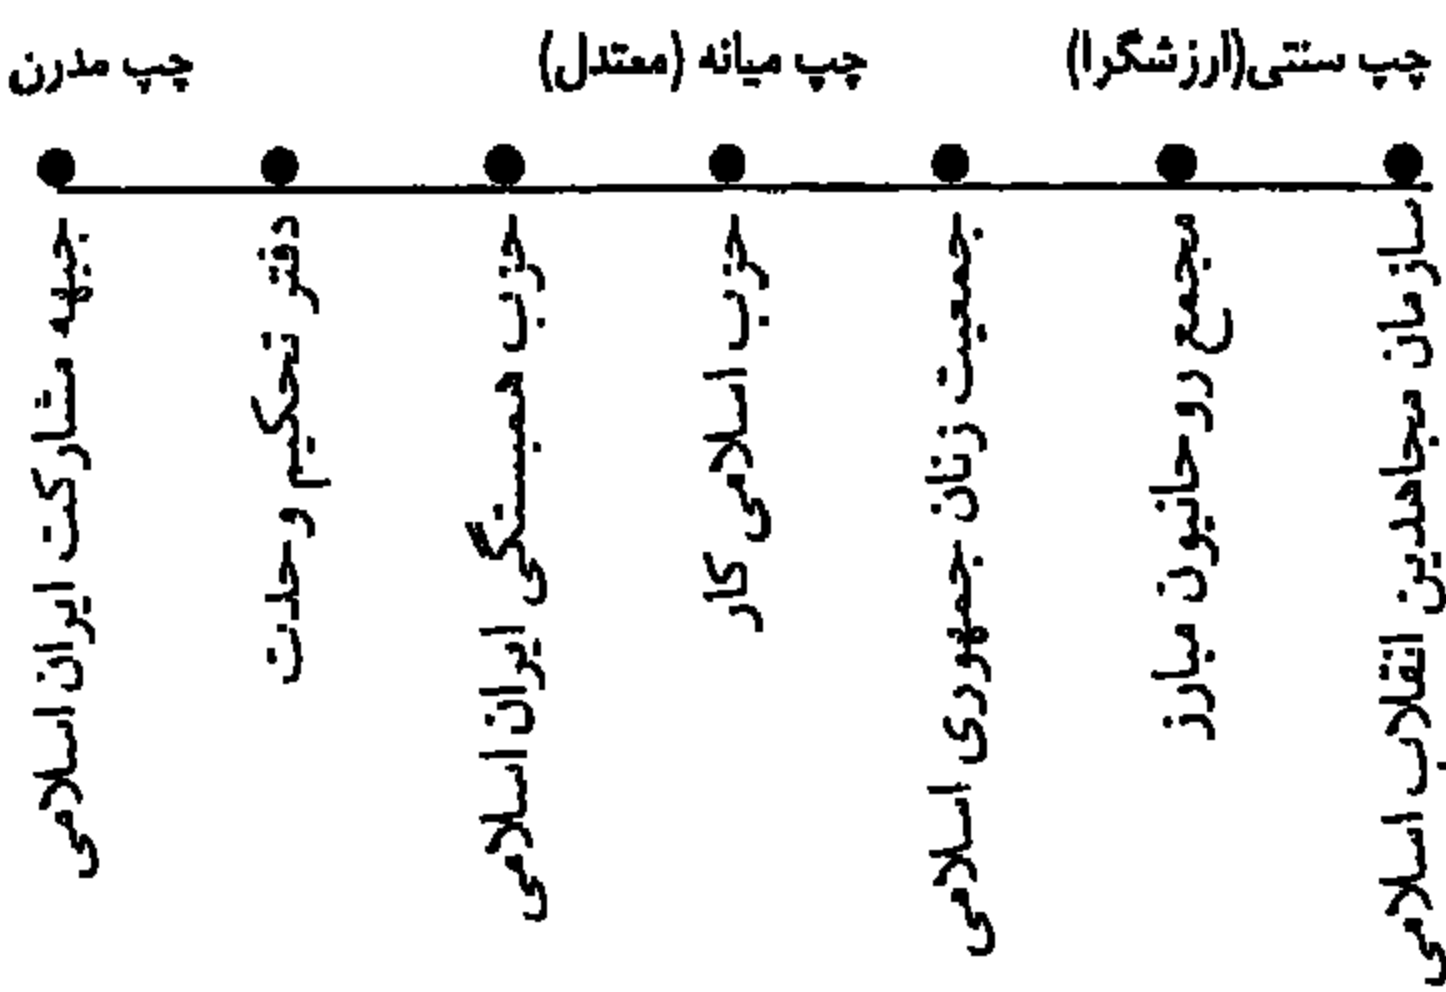 چپ سنتی(ارزشگرا)
چپ میانه (معتدل)
چپ مدرن
سازمان مجاهدین انقلاب اسلامی
مجمع روحانیون مبارز
جمعیت زنان جمهوری اسلامی
حزب اسلامی کار
حزب همبستگی ایران اسلامی
دفتر تحکیم وحدت
جبهه مشارکت ایران اسلامی